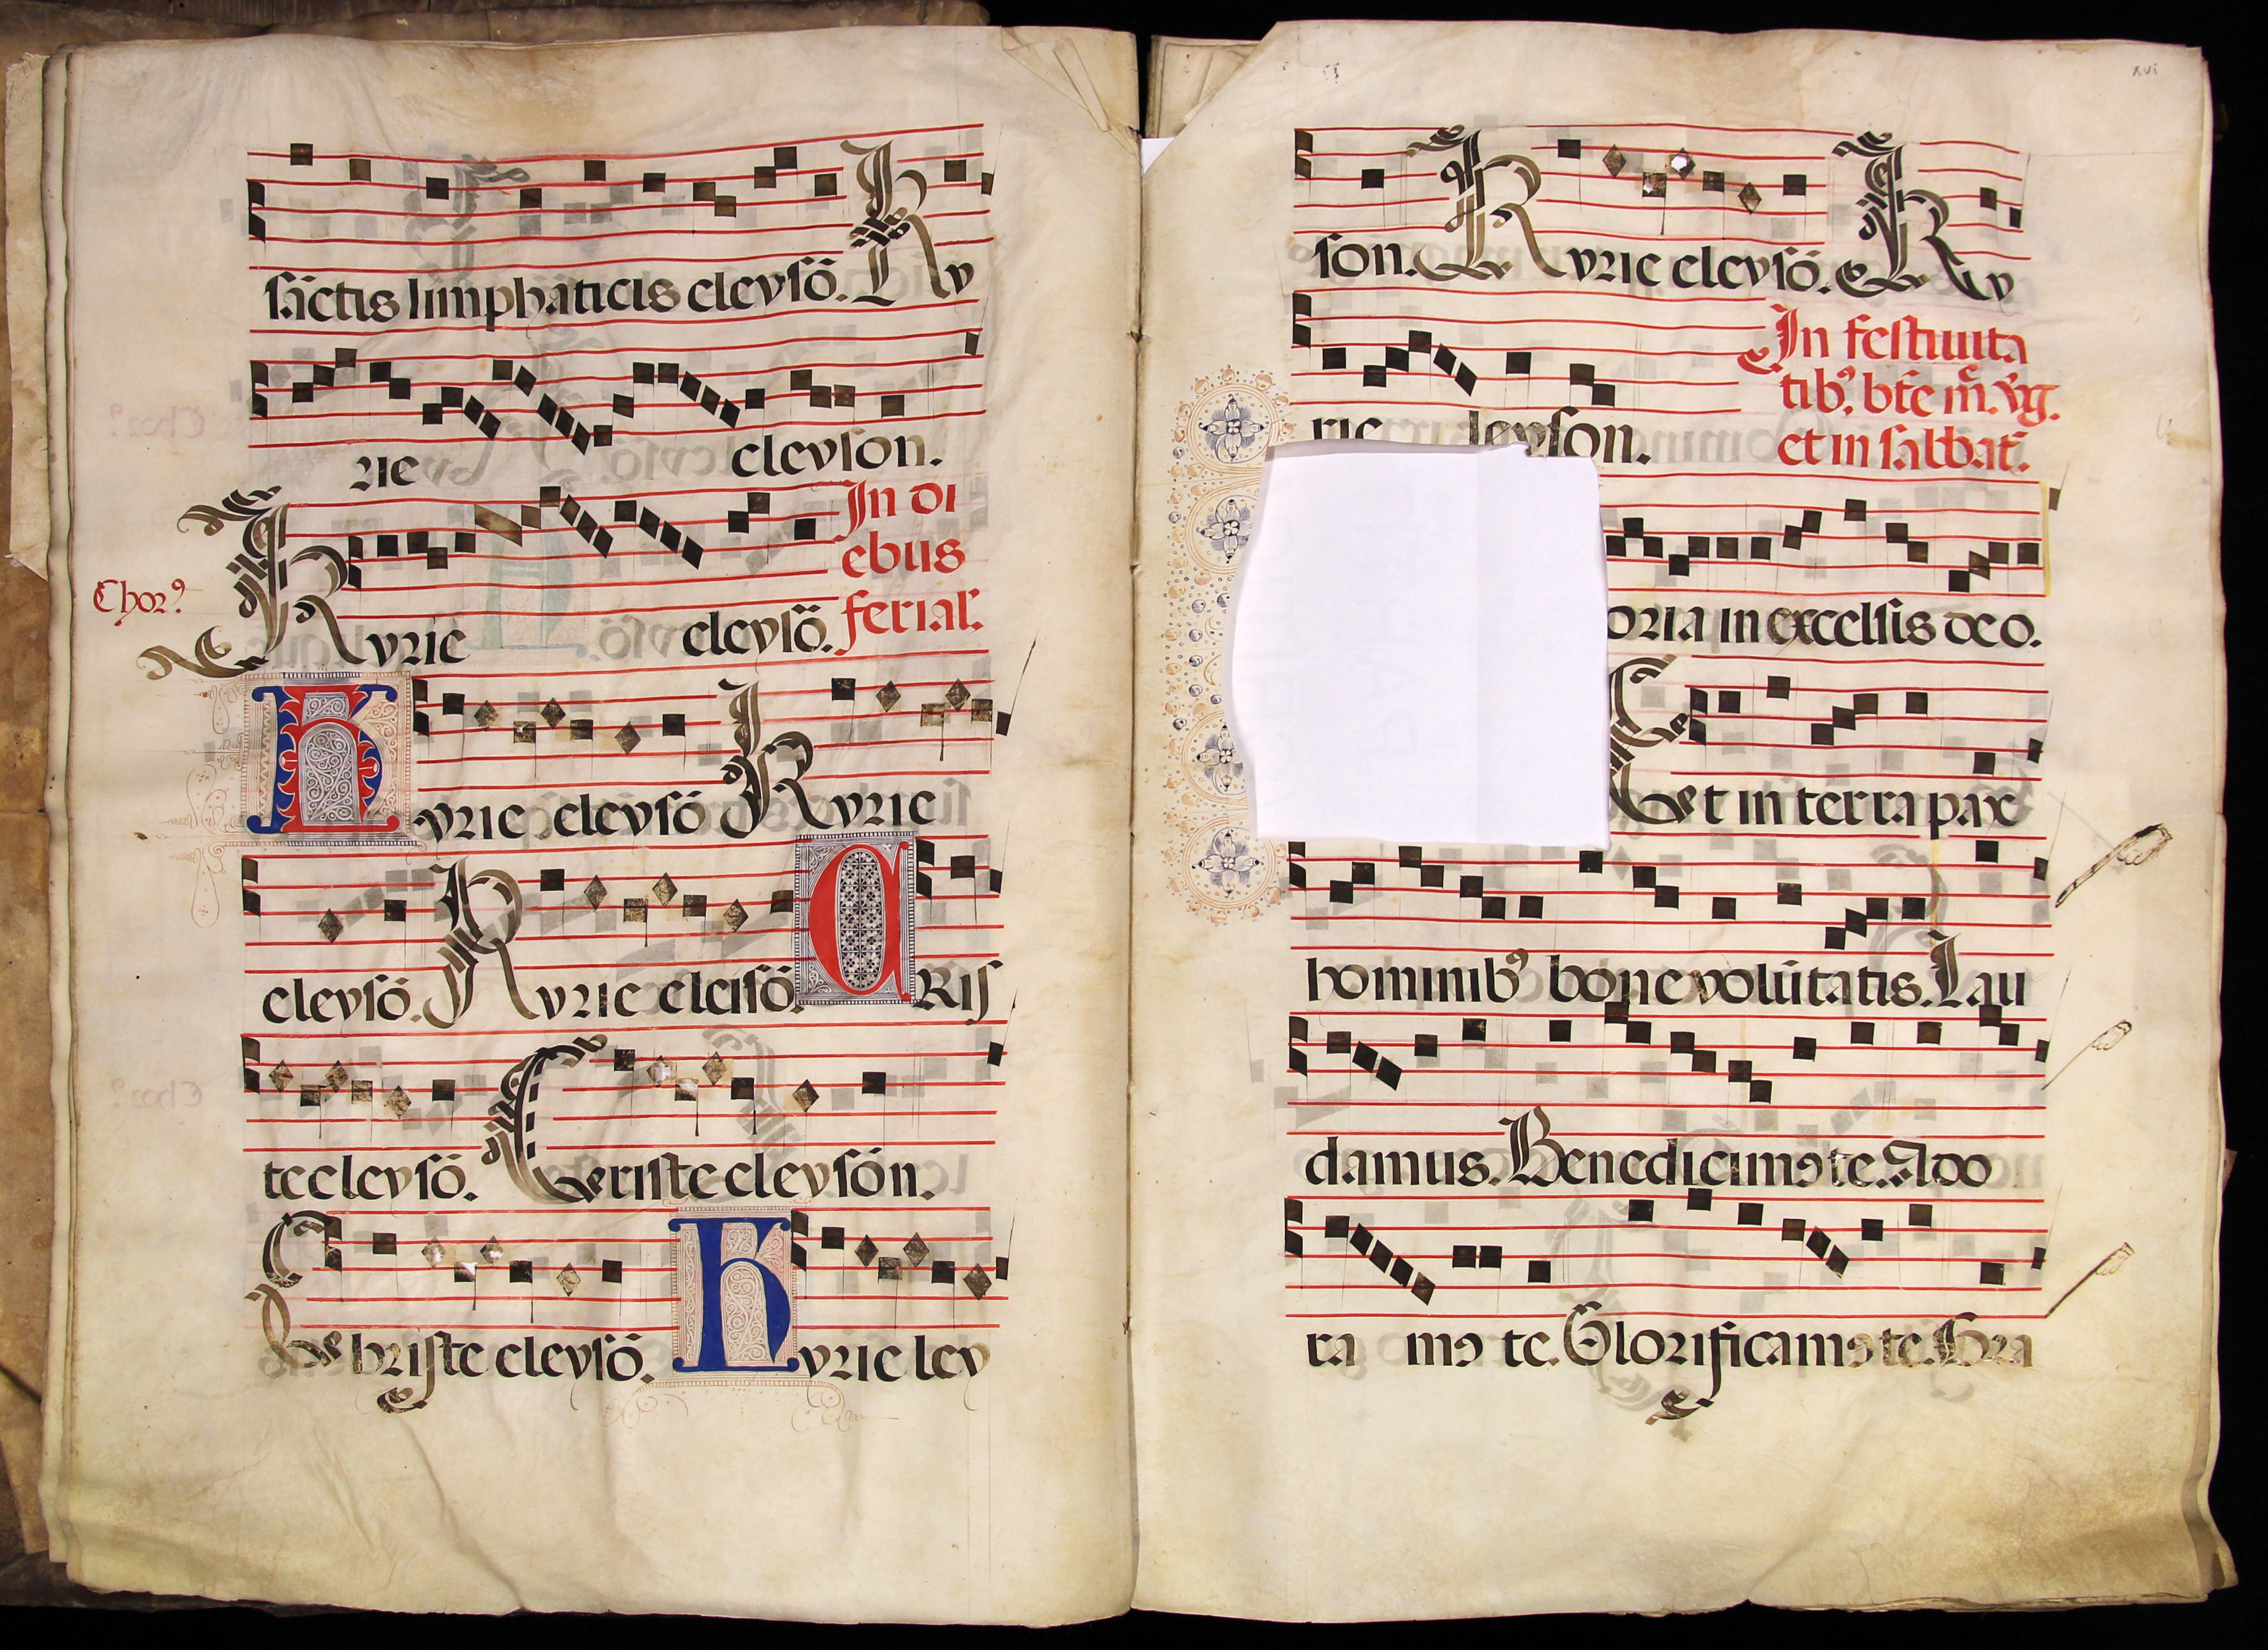 sāctis limphaticis eleysō. Ky
rie eleyson.
Chorꝰ
Kyrie eleysō.
In di
ebus
ferial.
Kyrie eleysō Kyrie
eleysō. Kyrie eleisō. CRis
te eleysō. Christe eleysōn.
Christe eleysō. Kyrie ley
xvi
son. Kyrie eleysō. Ky
rie leyson.
In festiuita
tibꝰ. bte m. vg.
et in sabbat.
oria in excelsis deo.
Et in terra pax
hominibꝰ bone volūtatis. Lau
damus. Benedicimꝰ te. Ado
ra mꝰ te. Glorificamꝰ te. Gra